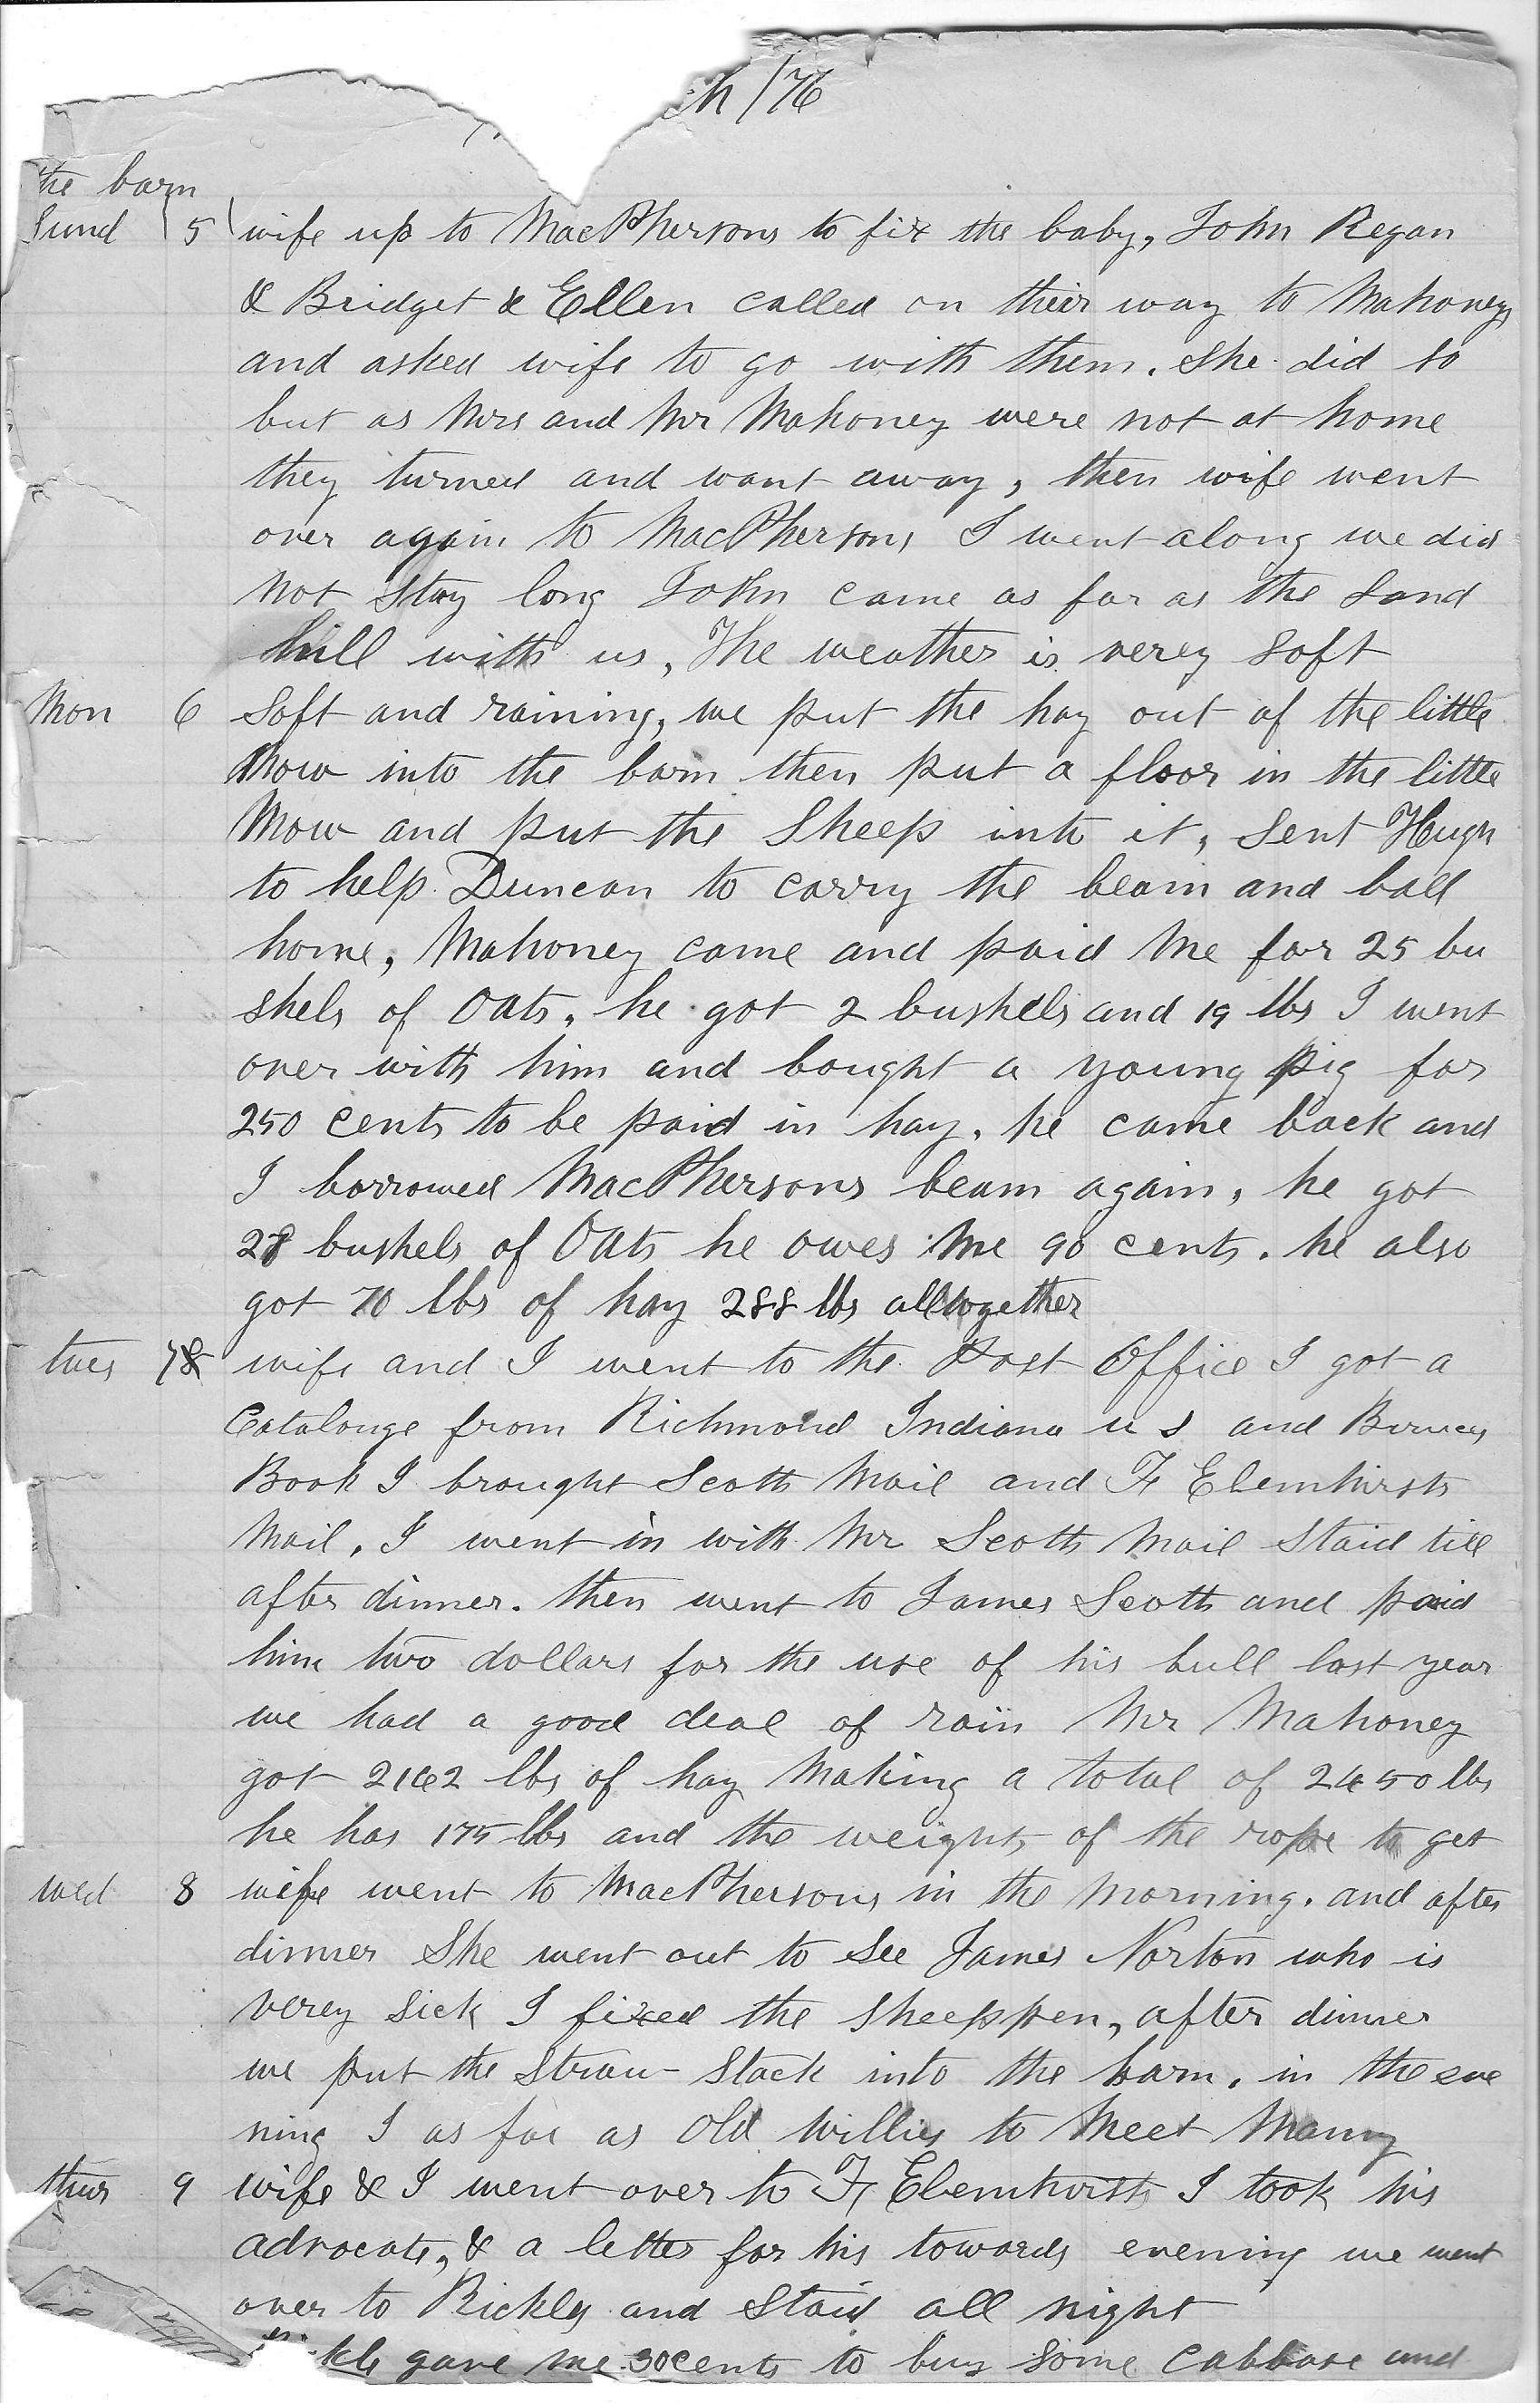 h /76
the barn
Sund 5 wife up to MacPhersons to fix the baby, John Regan
& Bridget & Ellen called on their way to Mahoneys
and asked wife to go with them. She did so
but as Mrs and Mr Mahoney were not at home
they turned and want away, then wife went
over again to MacPhersons I went along we did
not stay long John came as far as the Sand
hill with us, The weather is verey soft
Mon 6 Soft and raining, we put the hay out of the little
Mow into the barn then put a floor in the little
Mow and put the Sheep into it, Sent Hugh
to help Duncan to carry the beam and ball
home, Mahoney came and paid me for 25 bu
shels of Oats, he got 2 bushels and 19 lbs I went
over with him and bought a young pig for
250 cents to be paid in hay, he came back and
I borrowed MacPhersons beam again, he got
28 bushels of Oats he owes me 90 cents. he also
got 70 lbs of hay 288 lbs alltogether
tues 7 wife and I went to the Post Office I got a
Catalouge from Richmond Indiana U S and
Book I brought Scotts Mail and F Elemhirsts
Mail, I went in with Mr Scotts Mail Staid till
after dinner. then went to James Scotts and paid
him two dollars for the use of his bull last year
we had a good deal of rain Mr Mahoney
got 2162 lbs of hay Making a total of 2450 lbs
he has 175 lbs and the weight of the rope to get
wed 8 wife went to MacPhersons in the morning. and after
dinner She went out to See James Norton who is
verey Sick I fixed the Sheeppen, after dinner
we put the Straw Stack into the barn, in the eve
ning I as far as Old Willies to Meet
thurs 9 wife & I went over to F Elemhirsts I took his
advocate, & a letter for his towards evening we went
over to Rickles and Staid all night
gave me 30 cents to buy Some Cabbage and